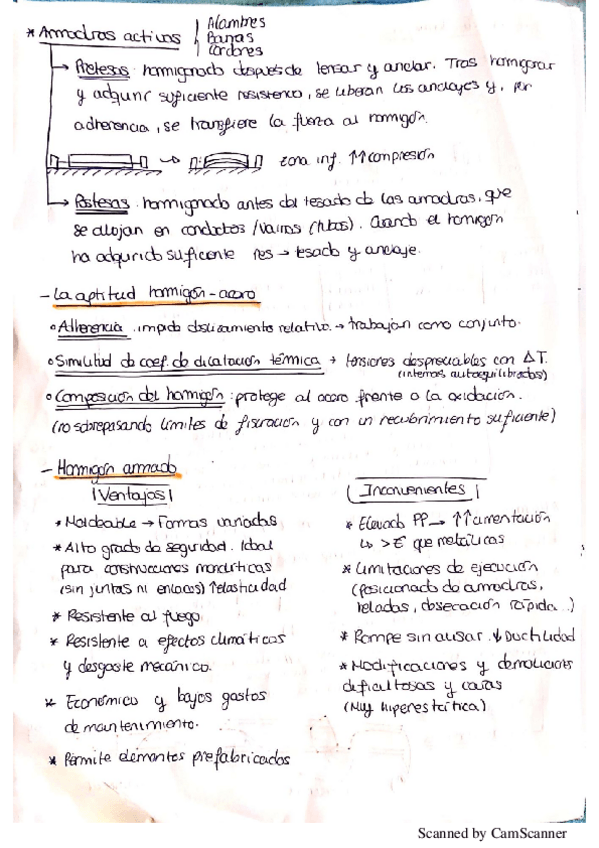 * Armadras activas
Alambres
Barras
Cordones
→ Pretesas: hormigonado después de tensar y anclar. Tras hormigonar
y adquirir suficiente resistencia, se liberan los anclajes y, por
adherencia, se transfiere la fuerza al hormigón.
zona inf. ↑↑ compresión
→ Postesas: hormigonado antes del tesado de las armadras, que
se alojan en conductos/vainas (tubos). Cuando el hormigón
ha adquirido suficiente res → tesado y anclaje.
- La aptitud hormigón-acero
• Adherencia: impide deslizamiento relativo. → trabajan como conjunto.
• Similitud de coef. de dilatación térmica → tensiones despreciables con ΔT.
(internas, autoequilibradas)
• Composición del hormigón: protege al acero frente a la oxidación.
(no sobrepasando límites de fisuración y con un recubrimiento suficiente)
- Hormigón armado
|Ventajas|
* Moldeable → Formas variadas
* Alto grado de seguridad. Ideal
para construcciones monolíticas
(sin juntas ni enlaces) ↑elasticidad
* Resistente al fuego
* Resistente a efectos climáticos
y desgaste mecánico.
* Económico y bajos gastos
de mantenimiento.
* Permite elementos prefabricados
|Inconvenientes|
* Elevado PP → ↑↑cimentación
↳ >E que metálicas
* Limitaciones de ejecución
(posicionado de armadras,
heladas, desecación rápida...)
* Rompe sin avisar. ↓Ductilidad
* Modificaciones y demoliciones
dificultosas y caras
(Muy hiperestática)
Scanned by CamScanner